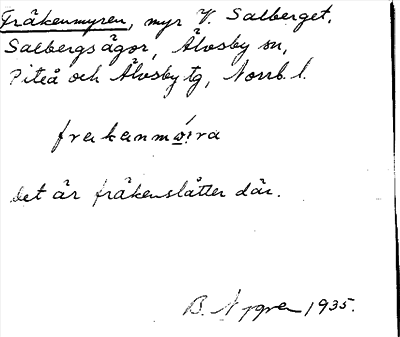 Fräkenmyren, myr V. Salberget,
Salbergsägor, Älvsby sn,
Piteå och Älvsby tg, Norrb. l.
frɛkɛnmó̱:ra
Det är fräkenslåtter där.
B. Nygren 1935.